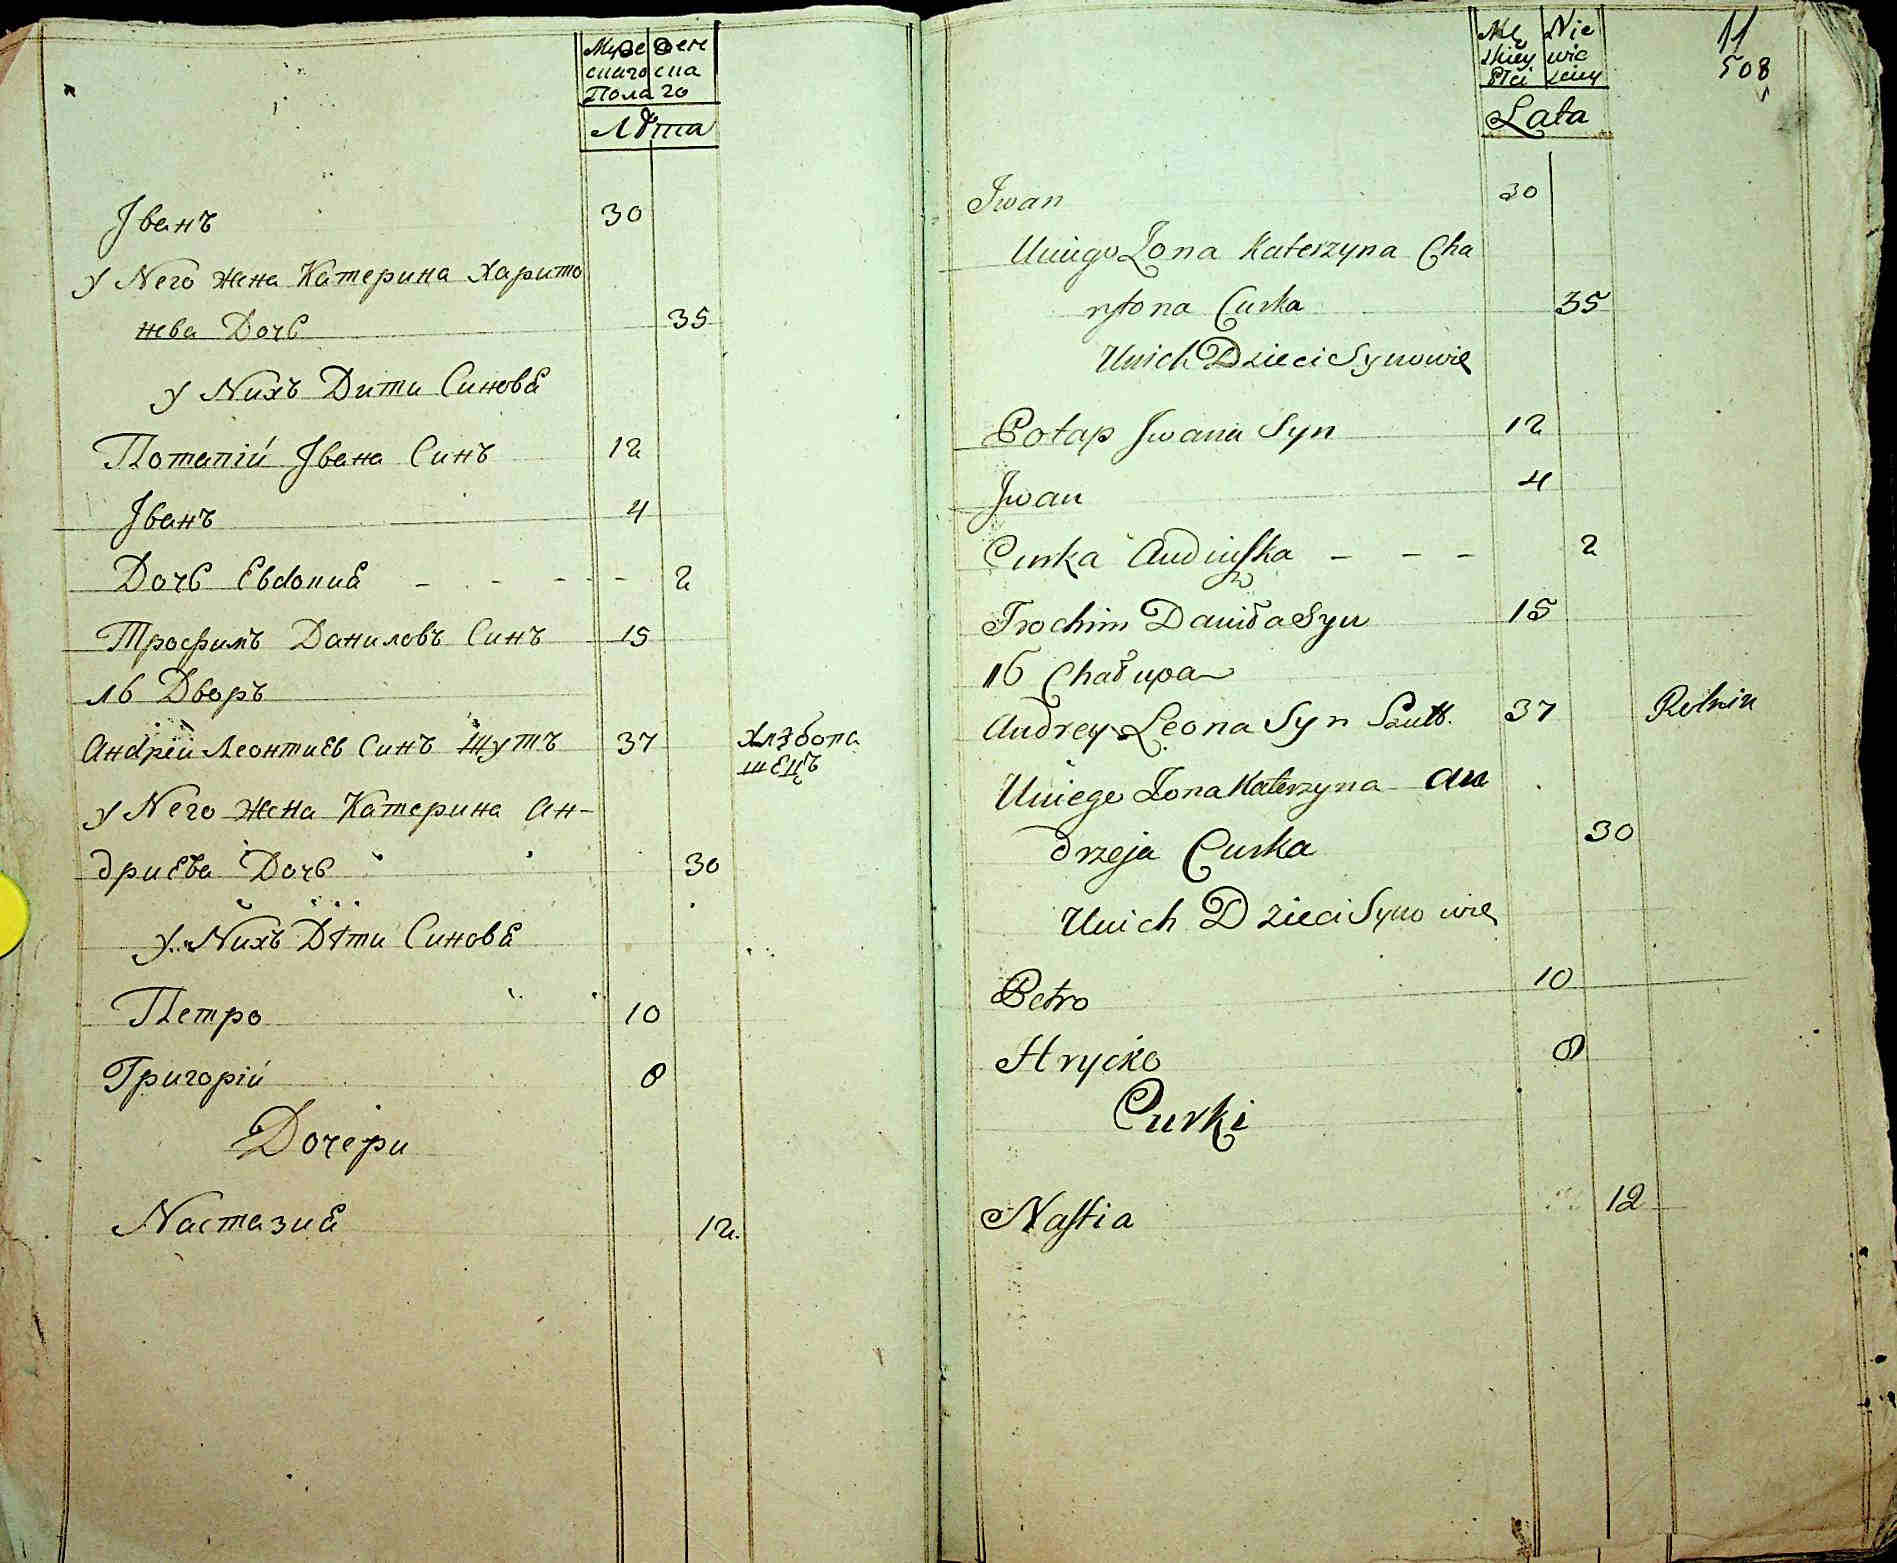 Мужескаго Пола
Женскаго
Лѣта
Іванъ 30
у Него Жена Катерина Харито
нова Дочь 35
у Нихъ Дити Синовѣ
Потапій Івана Синъ 12
Іванъ 4
Дочь Евдокиѣ - - - - 2
Трофимъ Даниловъ Синъ 15
16 Дворъ
Андрей Леонтиев Синъ Шутъ 37 Хлѣбопа
шецъ
у Него Жена Катерина Ан-
дриева Дочь 30
у Нихъ Дѣти Синовѣ
Петро 10
Григорій 8
Дочери
Настазиѣ 12
Mę skiey Płci
Nie wie sciey
Lata
11
508
Iwan 30
Uniego Żona Katerzyna Cha
rytona Curka 35
Unich Dzieci Synowie
Potap Iwana Syn 12
Iwan 4
Curka - - - 2
Trochim Daniła Syn 15
16 Chałupa
Andrey Leona Syn Szutt. 37 Rolnik
Uniego Żona Katerzyna An
drzeja Curka 30
Unich Dzieci Synowie
Petro 10
Hrycko 8
Curki
Nastia 12